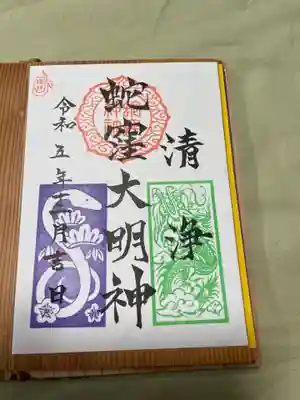 清浄
蛇窪大明神
令和五年三月吉日